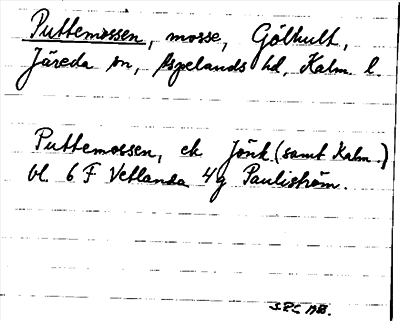 Puttemossen, mosse, Gölhult,
Järeda sn, Aspelands hd, Kalm. l.
Puttemossen, ek Jönk (samt Kalm.)
bl. 6 F Vetlanda 4g Pauliström.